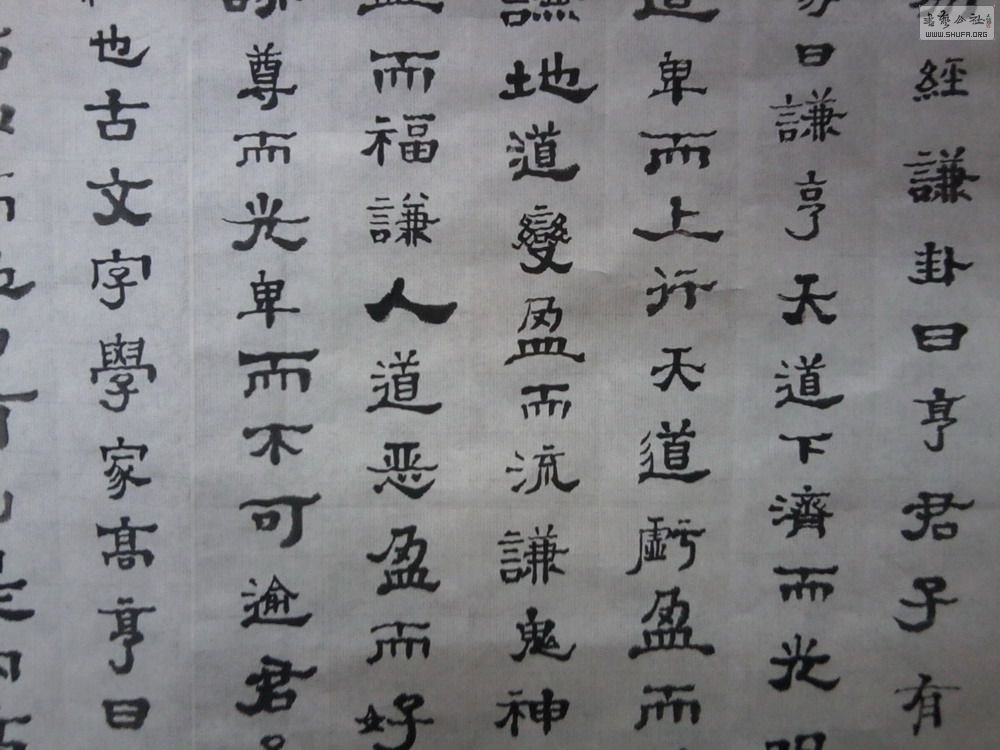 經謙卦曰亨君子有
曰謙亨天道下濟而光
道卑而上行天道虧盈而
謙地道變盈而流謙鬼神
盈而福謙人道恶盈而好
謙尊而光卑而不可逾君
也古文字學家高亨曰
書藝公社
WWW.SHUFA.ORG